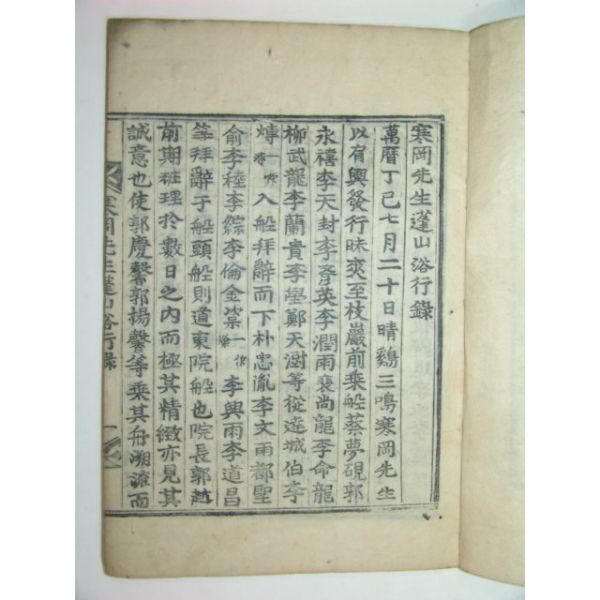 寒岡先生蓬山浴行錄
萬曆丁巳七月二十日晴鷄三鳴寒岡先生
以肩輿發行昧爽至枝巖前乘船蔡夢硯郭
永禧李天封李彥英李潤雨裵尚龍李命龍
柳武龍李蘭貴李𡐔鄭天澍等從達城伯李
㷜一作入船拜辭而下朴忠胤李文雨都聖
俞李稑李綜李倫金㮨一作李興雨李道昌
等拜辭于船頭船則道東院船也院長郭趪
前期粧理於數日之內而極其精緻亦見其
誠意也使郭慶馨郭揚馨等乘其舟溯流而
寒岡先生蓬山浴行錄 一